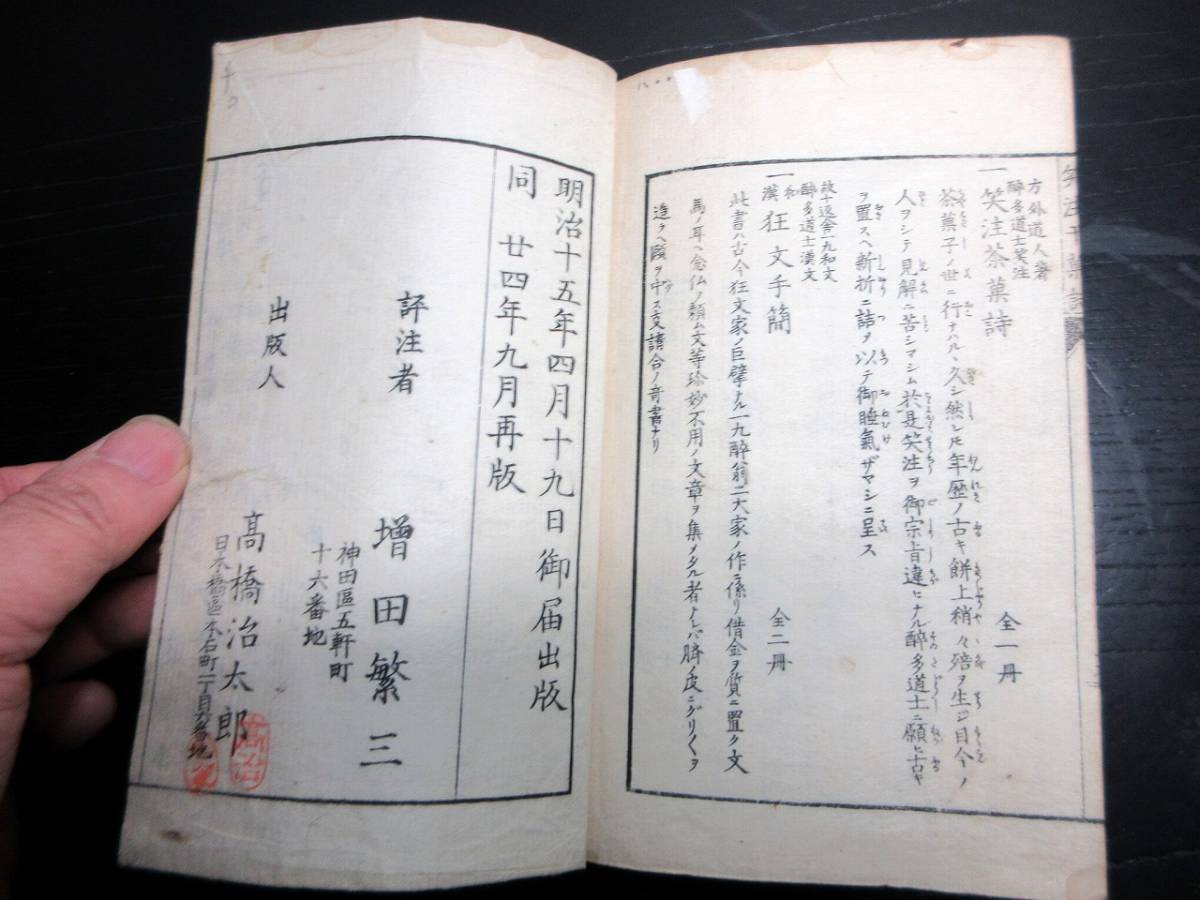 方外道人著
醉多道士笑注
一笑注茶菓詩
全一冊
茶菓子ノ世ニ行ナハルヽ久シ然レ𪜈年歴ノ古キ餅上稍々殕ヲ生ジ目今ノ
人ヲシテ見解ニ苦シマシム於是笑注ヲ御宗旨違ヒナル醉多道士ニ願ヒ古キ
ヲ置スヘ新折ニ詰ヲ以テ御睡氣ザマシニ呈ス
故十返舎一九和文
醉多道士漢文
一和漢狂文手簡
全二冊
此書ハ古今狂文家ノ巨擘ナル一九醉翁二大家ノ作ニ係リ借金ヲ質ニ置ク文
馬ノ耳ヘ念仏ノ頼ム文等珍妙不用ノ文章ヲ集メタル者ナレバ臍ノ皮ニグリ〳〵ヲ
造クヘ頤ヲ中ス文請合ノ奇書ナリ
明治十五年四月十九日御届出版
同 廿四年九月再版
評注者
增田繁三
神田區五軒町
十六番地
出版人
髙橋治太郎
日本橋區本石町二丁目六番地
髙治